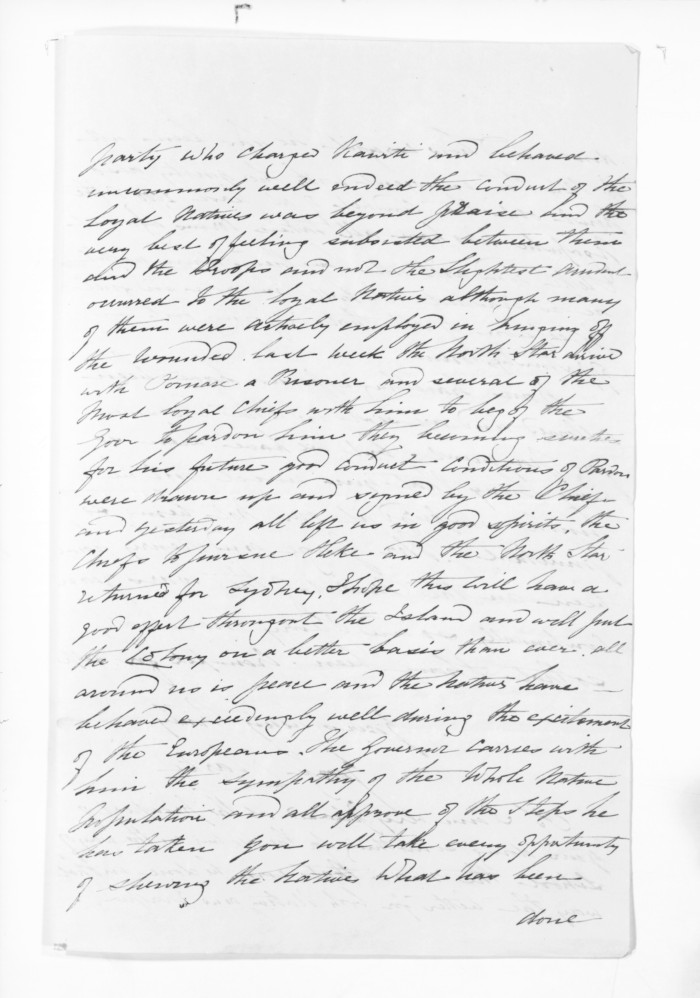 party who charged Kawiti and behaved
uncommonly well endeed the conduct of the
loyal Natives was beyond praise and the
very best of feeling subsisted between them
and the Troops and not the Slightest
occured to the loyal Natives although many
of them were actively employed in bringing off
the Wounded. last week the North Star arrive
with Pomare a Prisoner and several of the
Most loyal Chiefs with him to beg of the
Govr to pardon him they becoming
for his future good conduct Conditions of Pardon
were drawn up and signed by the Chiefs
and yesterday all left us in good spirits, the
Chiefs to pursue Heke and the North Star
returned for Sydney, I hope this will have a
good effect througout the Island and will put
the Colony on a better basis than ever. all
around us is peace and the Natives have
behaved exceedingly well during the excitement
of the Europeans. The Governor carries with
him the sympathy of the Whole Native
population and all approve of the Steps he
has taken you will take every opportunity
of shewing the Natives What has been
done